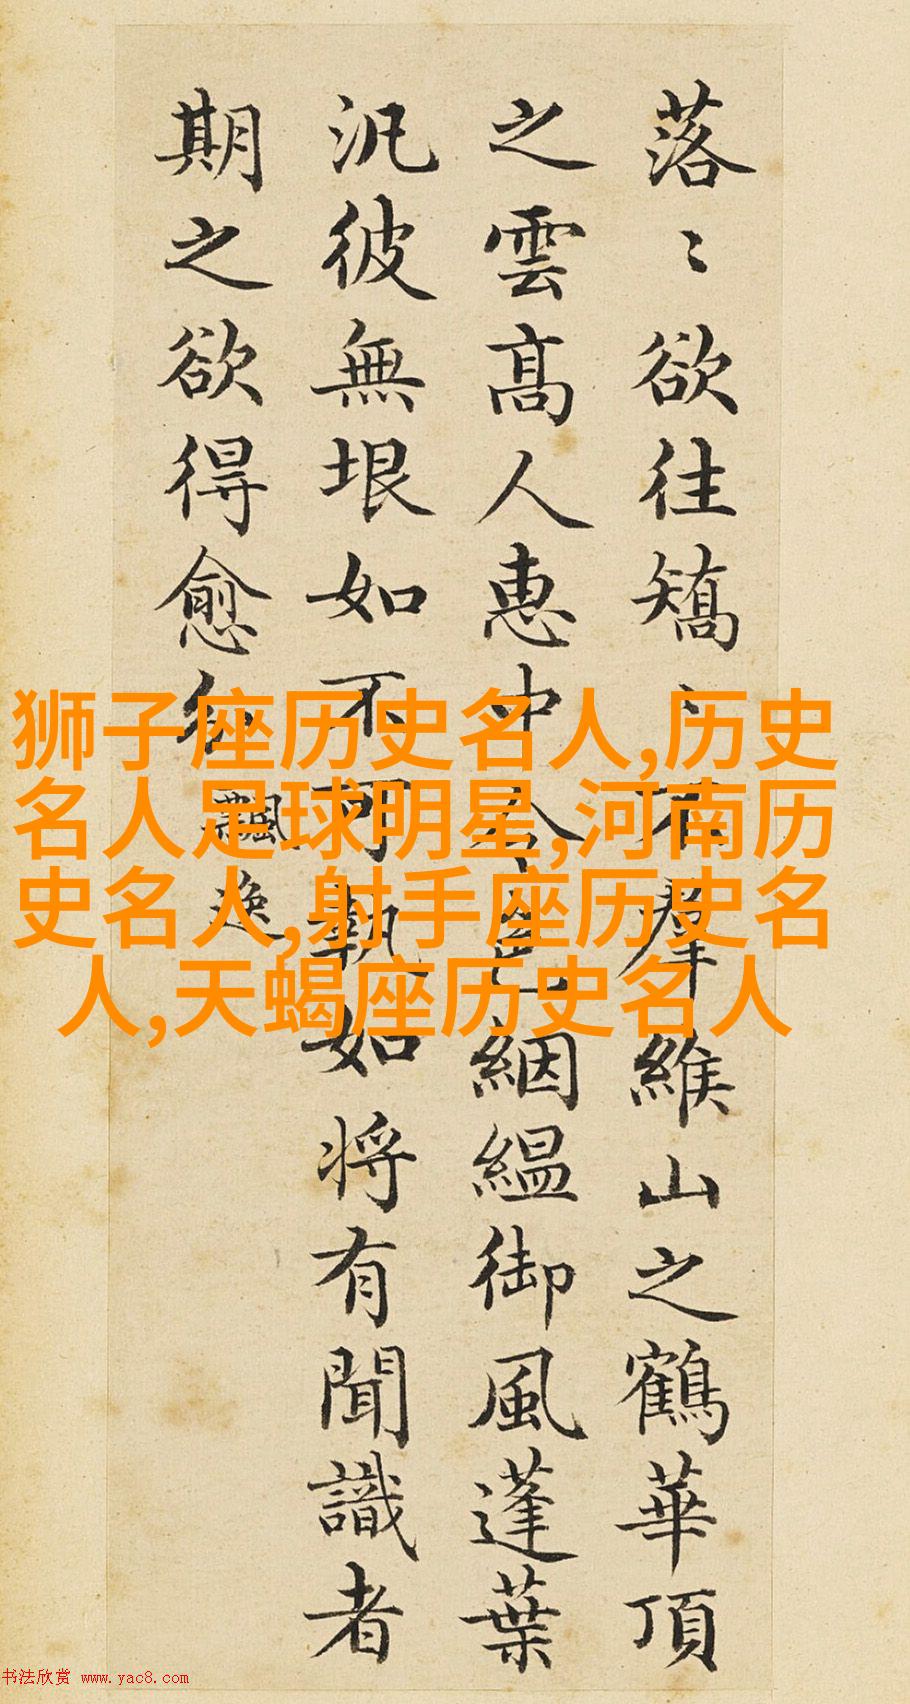 落〻欲往矯〻不羣緱山之鶴華頂
之雲髙人惠中令色絪縕御風蓬葉
汎彼無垠如不可執如將有聞識者
期之欲得愈分
飄逸
狮子座历史名人,历史
名人足球明星,河南历
史名人,射手座历史名
人,天蝎座历史名人
书法欣赏 www.yac8.com